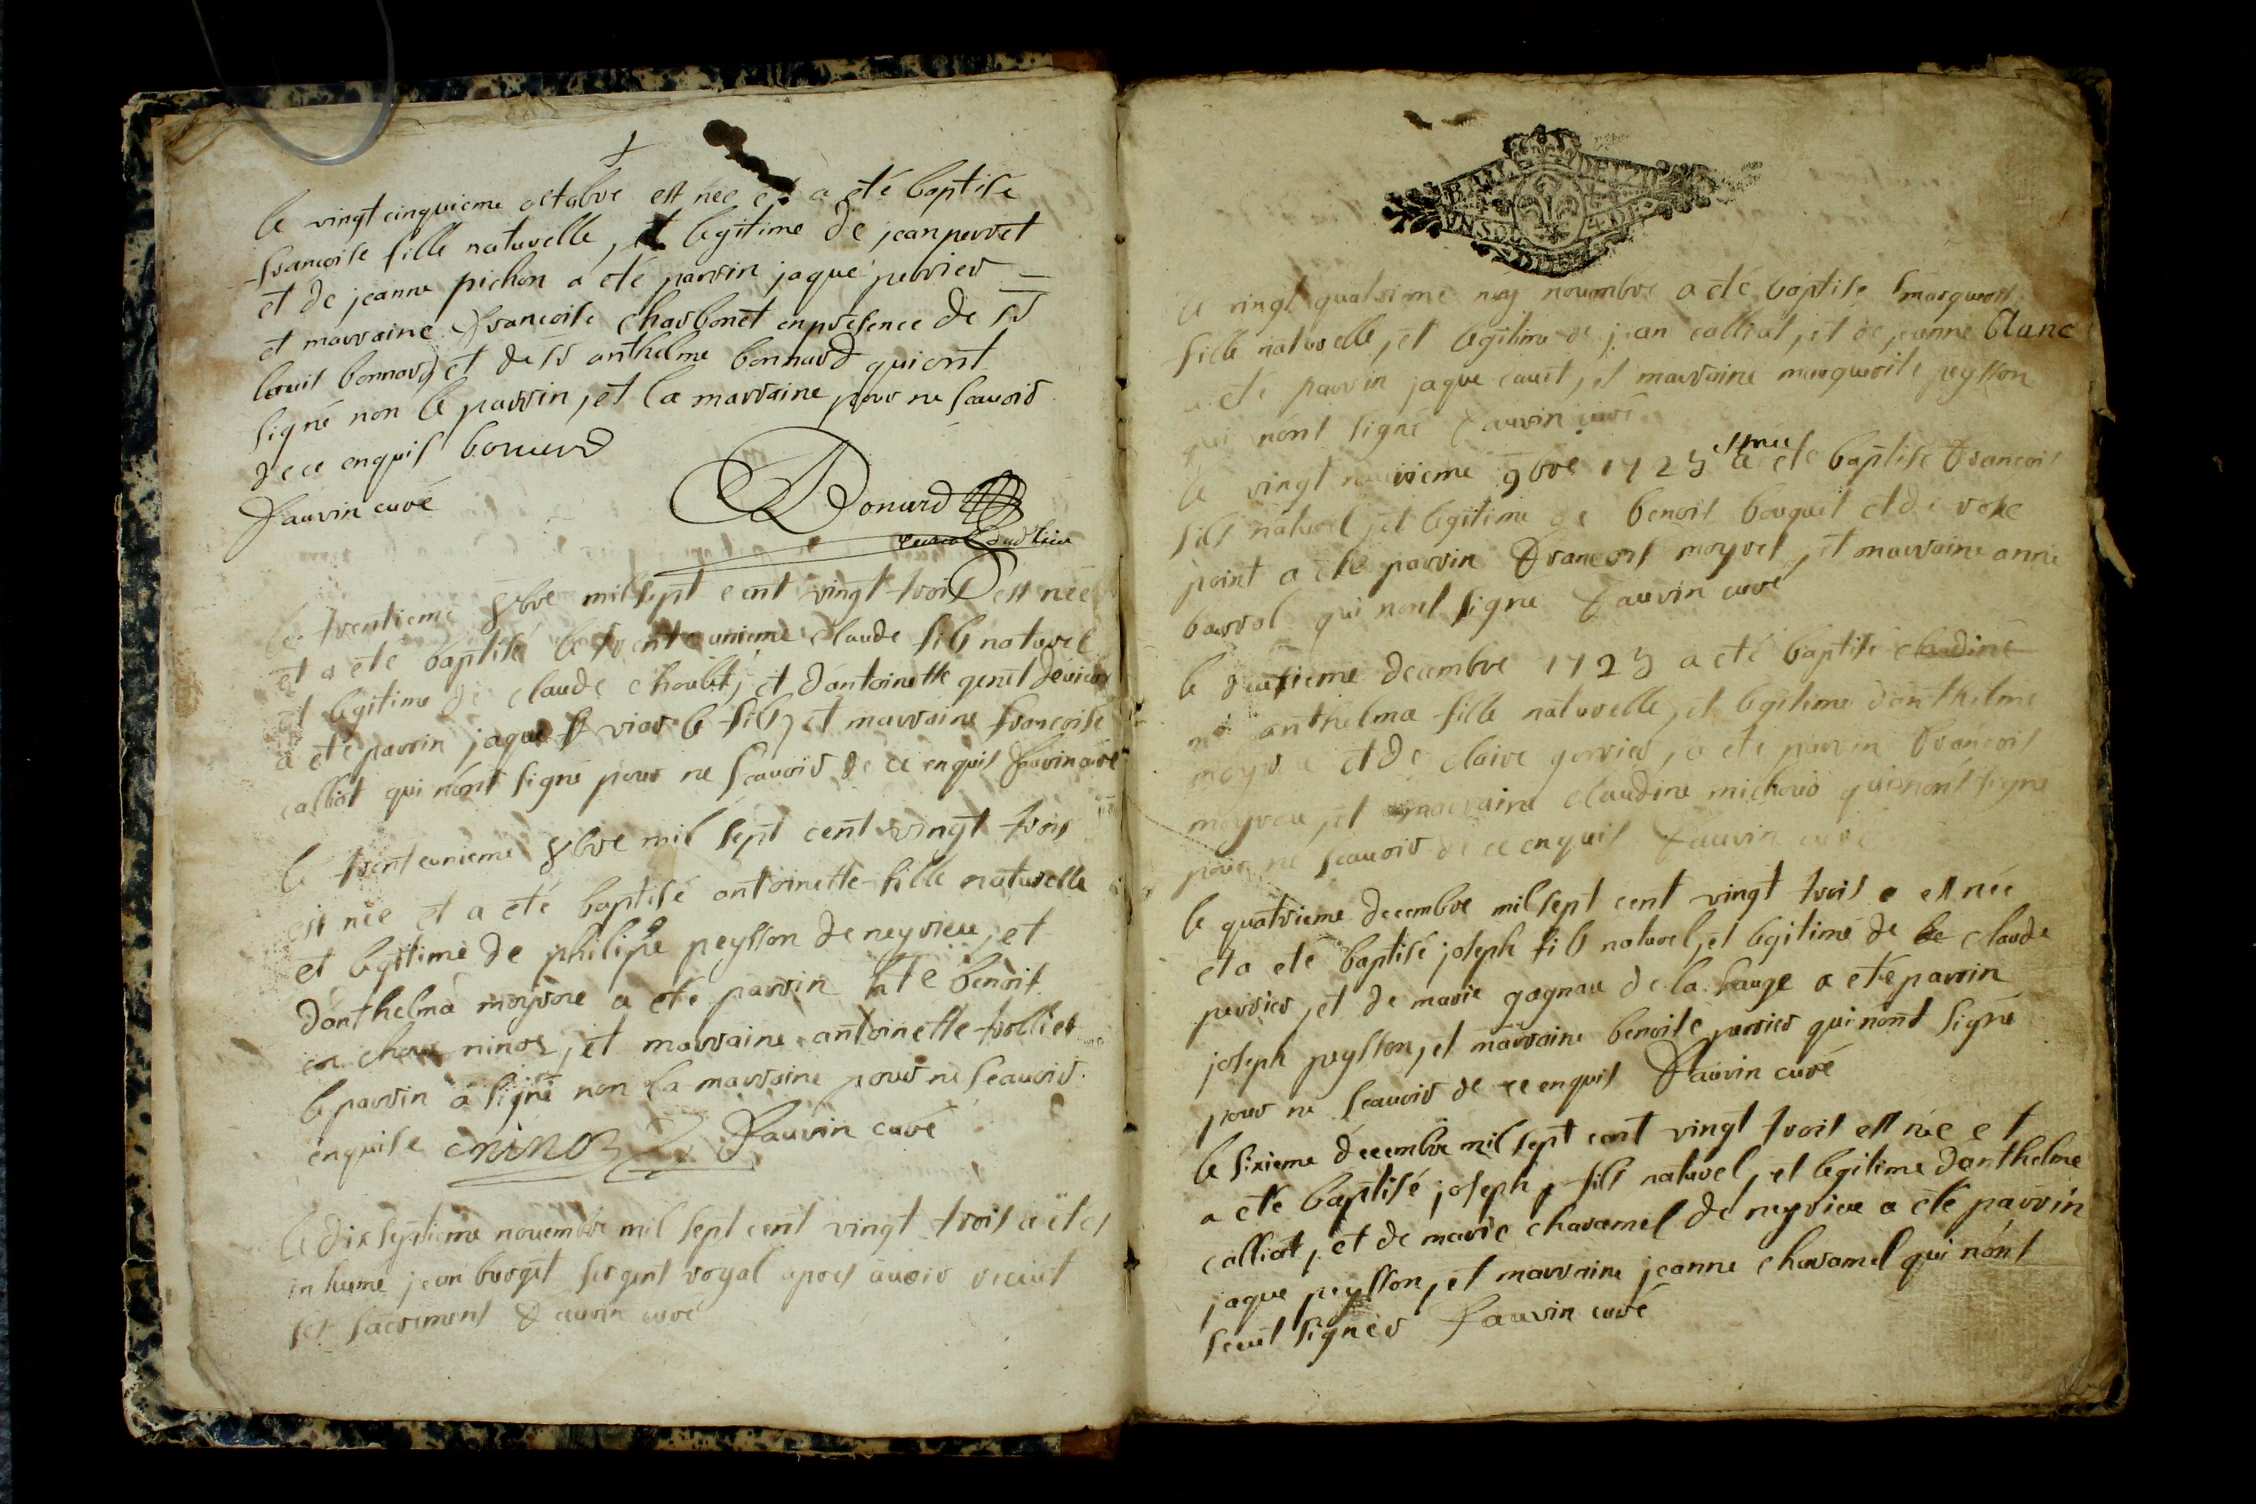 le vingt cinquieme octobre est née et a eté baptisé
francoise fille naturelle, et legitime de jean perret
et de jeanne pichon a eté parrin jaque perrier
et marraine francoise charbonet en presence de sr
louis bonnard et de sr anthelme bonnard qui ont
signé non le parrin, et la marraine pour ne scauoir
de ce enquis bonard
fauvin curé
Bonard
le trentieme 8bre mil sept cent vingt trois est née
et a eté baptisé le trente unieme claude fils naturel
et legitime de claude choulet, et dantoinette genet
a eté parrin jaque viar le fils, et marraine francoise
calliat qui nont signé pour ne scauoir de ce enquis fauvin curé
le trente unieme 8bre mil sept cent vingt trois
est née et a eté baptisé antoinette fille naturelle
et legitime de philipe peysson de neyrieu, et
danthelma moyroe a eté parrin benoit
ninoz, et marraine antoinette trollier
le parrin a signé non la marraine pour ne scauoir
enquise cninoz fauvin curé
le dix septieme nouembre mil sept cent vingt trois a eté
inhumé jean burget sergent royal apres auoir receut
ses sacrements fauvin curé
le vingt quatrieme nouembre a eté baptisé
fille naturelle, et legitime de jean calliat, et de jeanne blanc
a eté parrin jaque cauet, et marraine marguerite peysson
qui nont signé fauvin curé
le vingt neuvieme 9bre 1723 est née a eté baptisé francois
fils naturel, et legitime de benoit bouquet et de rose
point a eté parrin francois moyret, et marraine anne
barrol qui nont signé fauvin curé
le deuxieme decembre 1723 a eté baptisé claudine
anthelma fille naturelle, et legitime danthelme
et de claire perrier, a eté parrin francois
moyreu, et marraine claudine michoud qui nont signé
pour ne scauoir de ce enquis fauvin curé
le quatrieme decembre mil sept cent vingt trois est née
et a eté baptisé joseph fils naturel, et legitimé de claude
perrier, et de marie gagnau de la sauge a eté parrin
joseph peysson, et marraine benoite perrier qui nont signé
pour ne scauoir de ce enquis fauvin curé
le sixieme decembre mil sept cent vingt trois est née et
a eté baptisé joseph, fils naturel, et legitime danthelme
calliat, et de marie charamel de neyrieu a eté parrin
jaque peysson, et marraine jeanne charamel qui nont
sceut signer fauvin curé